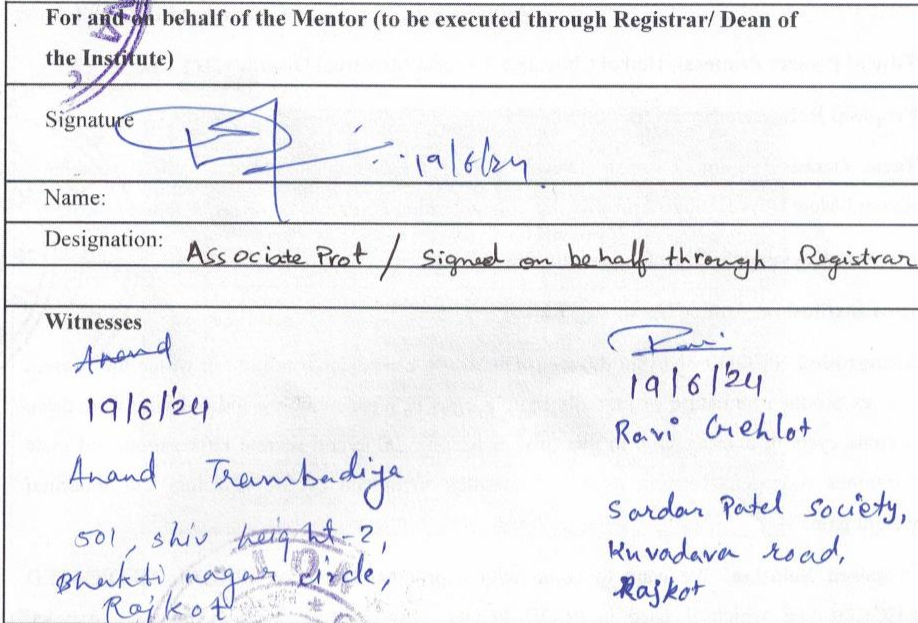 For and on behalf of the Mentor (to be executed through Registrar/ Dean of
the Institute)
Signature
19/6/24
Name:
Designation: Associate Prof / Signed on behalf through Registrar
Witnesses
Anand
19/6/24
Anand Trambadiya
501, shiv height-2,
Bhakti nagar circle,
Rajkot
Ravi
19/6/24
Ravi Gehlot
Sardar Patel society,
Kuvadava road,
Rajkot